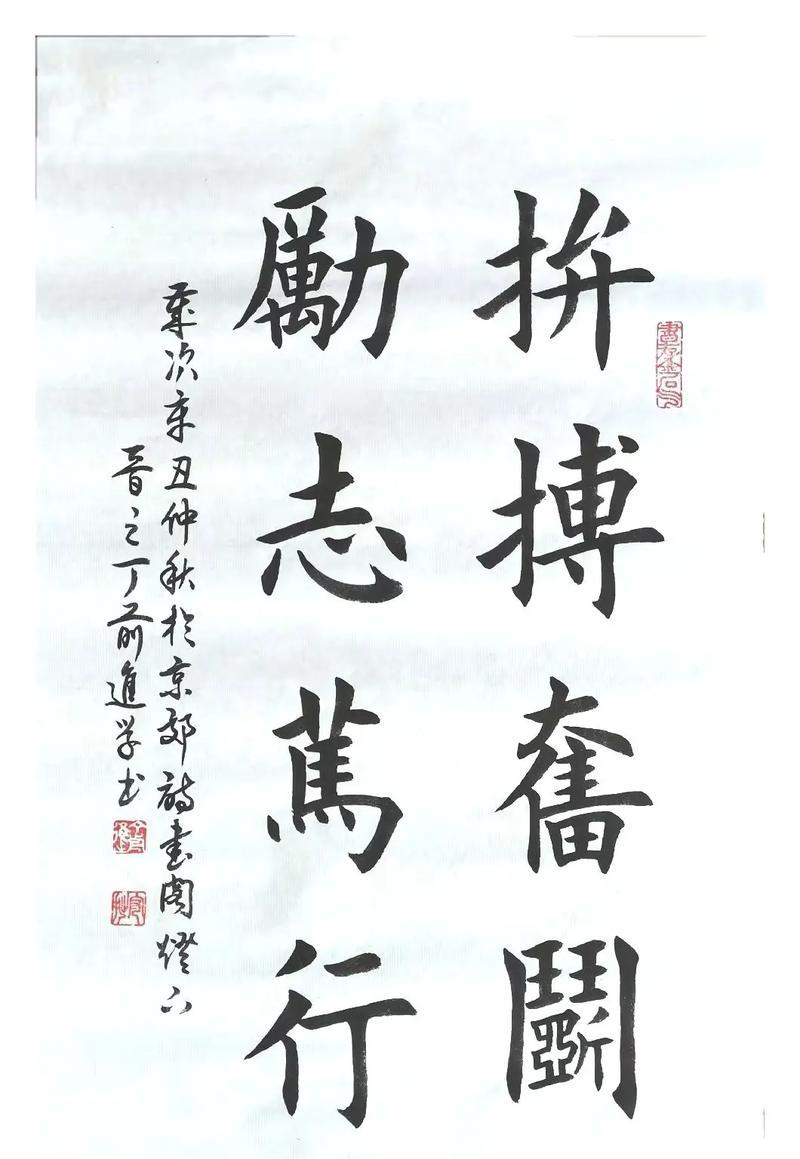 拚搏奮鬭
勵志篤行
歲次辛丑仲秋於京郊詩書閣燈下
晉之丁前進学书